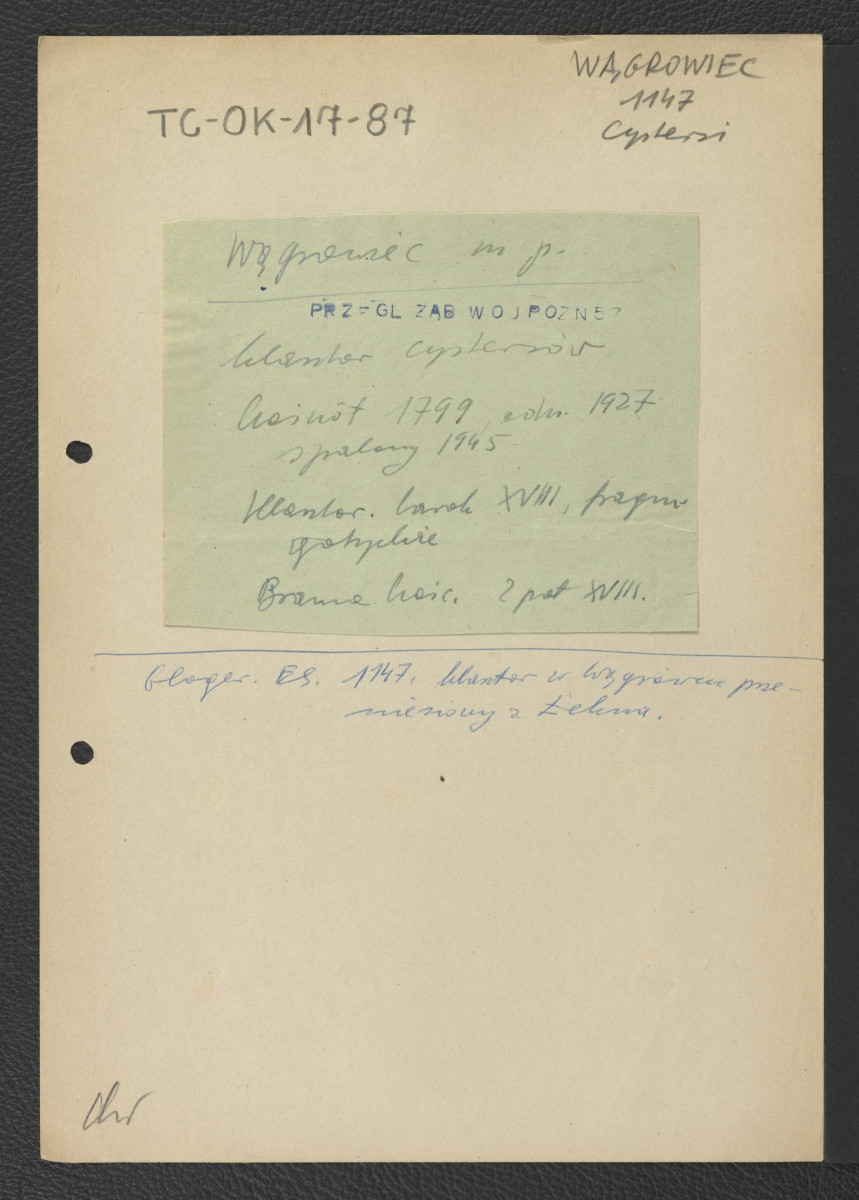 WĄGROWIEC
1147
Cystersi
TC-OK-17-87
Wągrowiec m p.
PRZEGL ZAB WOJ POZN 57
klasztor cystersów
kościół 1799, odn. 1927
spalony 1945
Klasztor. barok XVIII, fragm
gotyckie
Brama kośc. 2 poł XVIII.
Gloger. ES. 1147. klasztor w Wągrówcu prze-
niesiony z Łekna.